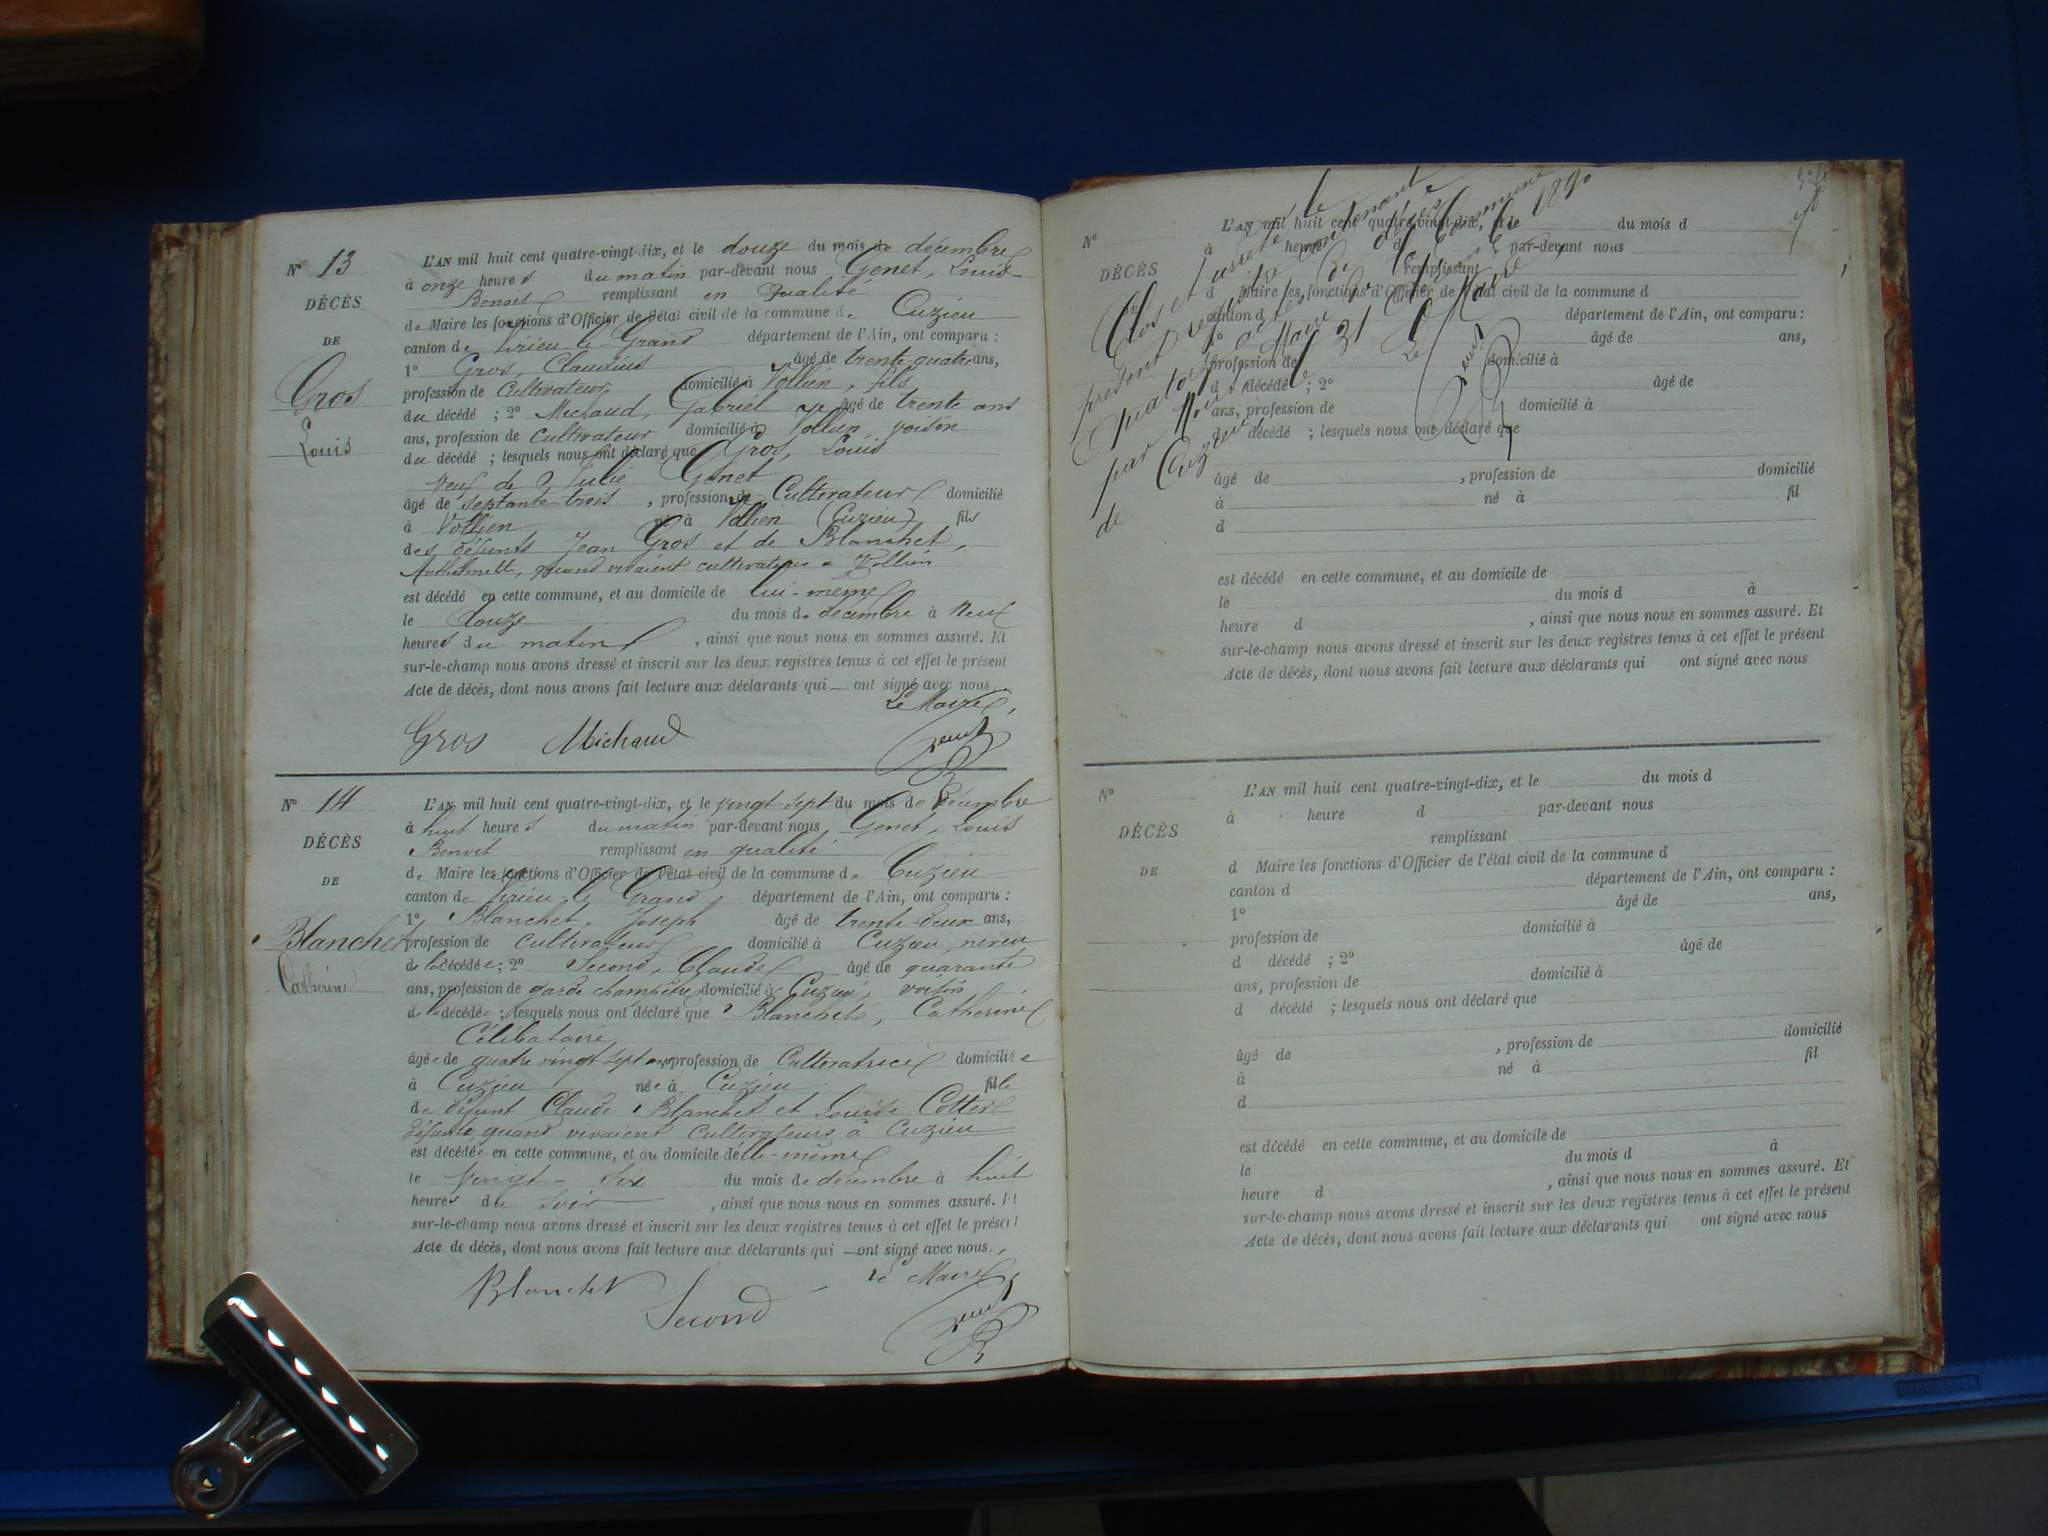 N° 13
DÉCÈS
DE
Gros
Louis
L'AN mil huit cent quatre-vingt-dix, et le douze du mois de décembre
à onze heures du matin par-devant nous Genet, Louis
Benoit remplissant en qualité
de Maire les fonctions d'Officier de l'état civil de la commune de Cuzieu
canton de Virieu-le-Grand département de l'Ain, ont comparu :
1° Gros, Claudius âgé de trente-quatre ans,
profession de Cultivateur domicilié à Vollien, fils
du décédé ; 2° Michaud, Gabriel âgé de trente ans
ans, profession de cultivateur domicilié à Vollien voisin
du décédé ; lesquels nous ont déclaré que Gros, Louis
veuf de Julie Genet
âgé de septante trois , profession de Cultivateur domicilié
à Vollien né à Vollien (Cuzieu) fils
des défunts Jean Gros et de Blanchet,
Anthelmette, quand vivaient cultivateurs à Vollien
est décédé en cette commune, et au domicile de lui-même
le douze du mois de décembre à neuf
heures du matin , ainsi que nous nous en sommes assuré. Et
sur-le-champ nous avons dressé et inscrit sur les deux registres tenus à cet effet le présent
Acte de décès, dont nous avons fait lecture aux déclarants qui — ont signé avec nous.
Le Maire,
Gros Michaud
N° 14
DÉCÈS
DE
Blanchet
Catherine
L'AN mil huit cent quatre-vingt-dix, et le vingt-sept du mois de décembre
à huit heures du matin par-devant nous Genet, Louis
Benoit remplissant en qualité
de Maire les fonctions d'Officier de l'état civil de la commune de Cuzieu
canton de Virieu-le-Grand département de l'Ain, ont comparu :
1° Blanchet, Joseph âgé de trente-deux ans,
profession de cultivateur domicilié à Cuzieu, neveu
de la décédée ; 2° Second, Claude âgé de quarante
ans, profession de garde champêtre domicilié à Cuzieu, voisin
de la décédée ; lesquels nous ont déclaré que Blanchet, Catherine
Célibataire
âgée de quatre vingt sept ans, profession de Cultivatrice domiciliée
à Cuzieu née à Cuzieu fille
de défunt Claude Blanchet et Louise
défunte, quand vivaient cultivateurs à Cuzieu
est décédée en cette commune, et au domicile d'elle-même
le vingt-six du mois de décembre à huit
heures du soir , ainsi que nous nous en sommes assuré. Et
sur-le-champ nous avons dressé et inscrit sur les deux registres tenus à cet effet le présent
Acte de décès, dont nous avons fait lecture aux déclarants qui — ont signé avec nous.
Le Maire,
Blanchet Second
Clos et arrêté le
présent registre contenant
quatorze actes de décès
par Nous Maire de la Commune
de Cuzieu le 31 Xbre 1890
Le Maire
N°
DÉCÈS
DE
L'AN mil huit cent quatre-vingt-dix, et le du mois d
à heure d par-devant nous
remplissant
d Maire les fonctions d'Officier de l'état civil de la commune d
canton d département de l'Ain, ont comparu :
1° âgé de ans,
profession de domicilié à
d décédé ; 2° âgé de
ans, profession de domicilié à
d décédé ; lesquels nous ont déclaré que
âgé de , profession de domicilié
à né à fil
d
est décédé en cette commune, et au domicile de
le du mois d à
heure d , ainsi que nous nous en sommes assuré. Et
sur-le-champ nous avons dressé et inscrit sur les deux registres tenus à cet effet le présent
Acte de décès, dont nous avons fait lecture aux déclarants qui ont signé avec nous
N°
DÉCÈS
DE
L'AN mil huit cent quatre-vingt-dix, et le du mois d
à heure d par-devant nous
remplissant
d Maire les fonctions d'Officier de l'état civil de la commune d
canton d département de l'Ain, ont comparu :
1° âgé de ans,
profession de domicilié à
d décédé ; 2° âgé de
ans, profession de domicilié à
d décédé ; lesquels nous ont déclaré que
âgé de , profession de domicilié
à né à fil
d
est décédé en cette commune, et au domicile de
le du mois d à
heure d , ainsi que nous nous en sommes assuré. Et
sur-le-champ nous avons dressé et inscrit sur les deux registres tenus à cet effet le présent
Acte de décès, dont nous avons fait lecture aux déclarants qui ont signé avec nous